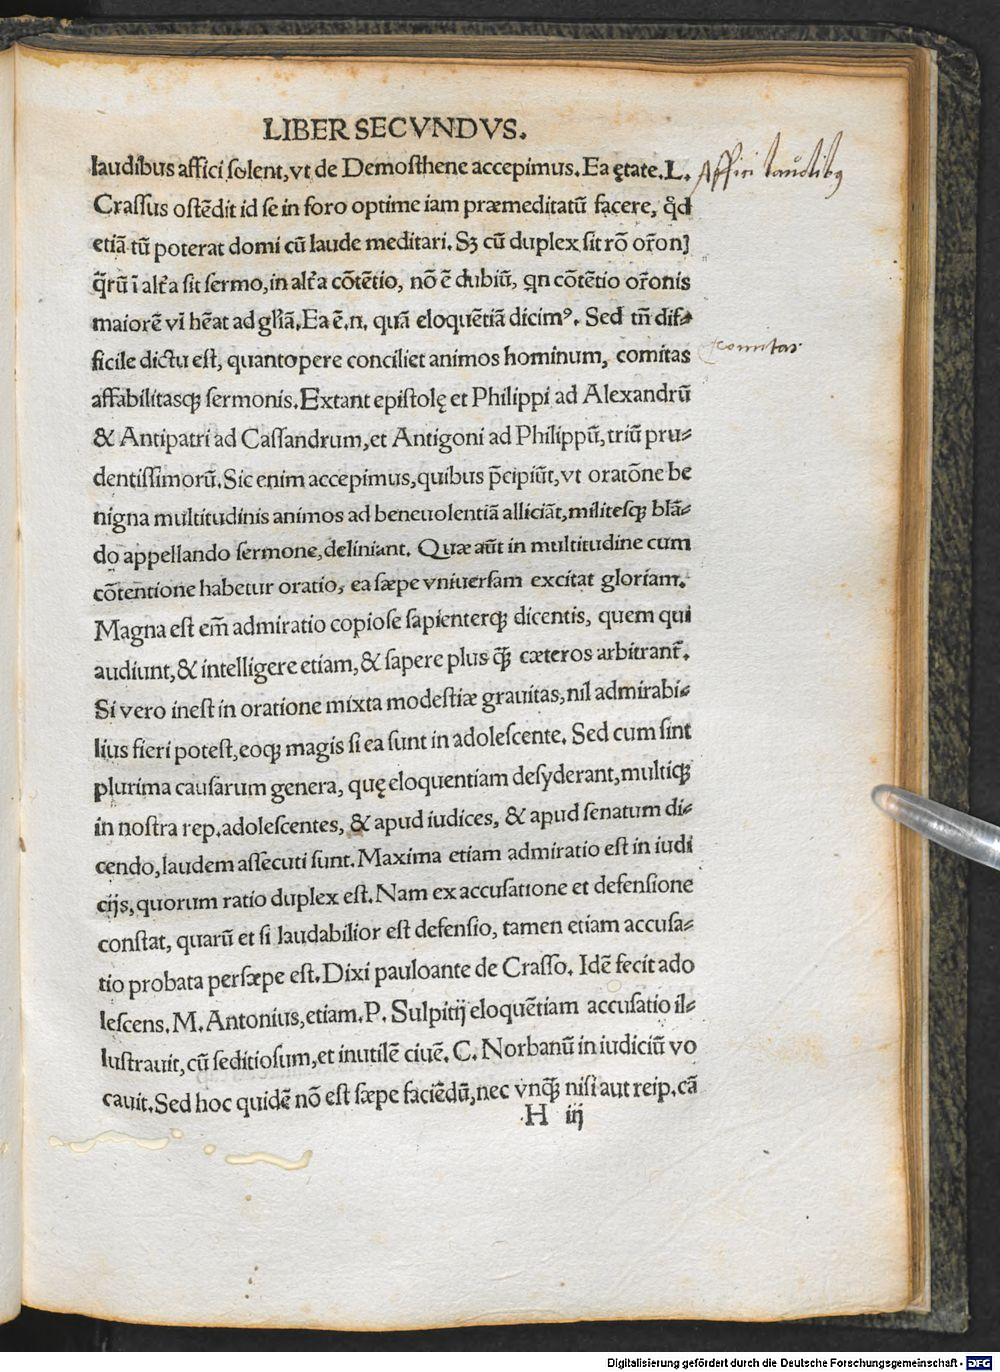 LIBER SECVNDVS.
laudibus affici ſolent, vt de Demoſthene accepimus. Ea ętate. L.
Affici laudibꝰ
Craſſus oſtẽdit id ſe in foro optime iam præmeditatũ facere, qd̃
etiã tũ poterat domi cũ laude meditari. Sȝ cũ duplex ſit rõ or̃onꝫ
q̃rũ ĩ alt̃a ſit ſermo, in alt̃a cõtẽtio, nõ ẽ dubiũ, qn cõtẽtio or̃onis
maiorẽ vĩ hẽat ad gl̃iã. Ea ẽ.n. quã eloquẽtiã dicimꝰ. Sed tñ dif-
ficile dictu eſt, quantopere conciliet animos hominum, comitas
comitas
affabilitasqꝫ ſermonis. Extant epiſtolę et Philippi ad Alexandrũ
& Antipatri ad Caſſandrum, et Antigoni ad Philippũ, triũ pru-
dentiſſimorũ. Sic enim accepimus, quibus p̃cipiũt, vt oratõne be
nigna multitudinis animos ad beneuolentiã alliciãt, militeſqꝫ blã-
do appellando ſermone, deliniant. Quæ aũt in multitudine cum
cõtentione habetur oratio, ea ſæpe vniuerſam excitat gloriam.
Magna eſt em̃ admiratio copioſe ſapienterqꝫ dicentis, quem qui
audiunt, & intelligere etiam, & ſapere plus q̃ꝫ cæteros arbitrant̃.
Si vero ineſt in oratione mixta modeſtiæ grauitas, nil admirabi-
lius fieri poteſt, eoqꝫ magis ſi ea ſunt in adoleſcente. Sed cum ſint
plurima cauſarum genera, quę eloquentiam deſyderant, multiqꝫ
in noſtra rep. adoleſcentes, & apud iudices, & apud ſenatum di-
cendo, laudem aſſecuti ſunt. Maxima etiam admiratio eſt in iudi
cijs, quorum ratio duplex eſt. Nam ex accuſatione et defenſione
conſtat, quarũ et ſi laudabilior eſt defenſio, tamen etiam accuſa-
tio probata perſæpe eſt. Dixi pauloante de Craſſo. Idẽ fecit ado
leſcens. M. Antonius, etiam. P. Sulpitij eloquẽtiam accuſatio il-
luſtrauit, cũ ſeditioſum, et inutilẽ ciuẽ. C. Norbanũ in iudiciũ vo
cauit. Sed hoc quidẽ nõ eſt ſæpe faciẽdũ, nec vnq̃ꝫ niſi aut reip. cã
H iij
Digitalisierung gefördert durch die Deutsche Forschungsgemeinschaft - DFG